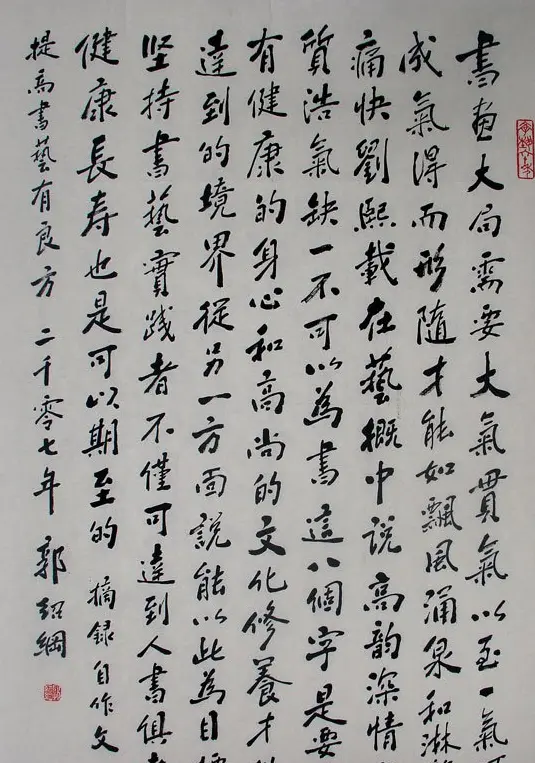 書画大局需要大氣貫氣以至一氣
成氣得而形隨才能如飄風涌泉和淋
痛快劉熙載在藝概中说高韵深情
質浩氣缺一不可以為書這八個字是要
有健康的身心和高尚的文化修養才
達到的境界從另一方面説能以此為目
坚持書藝實践者不僅可達到人書俱
健康長寿也是可以期至的 摘録自作文
提高書藝有良方 二千零七年 郭绍綱